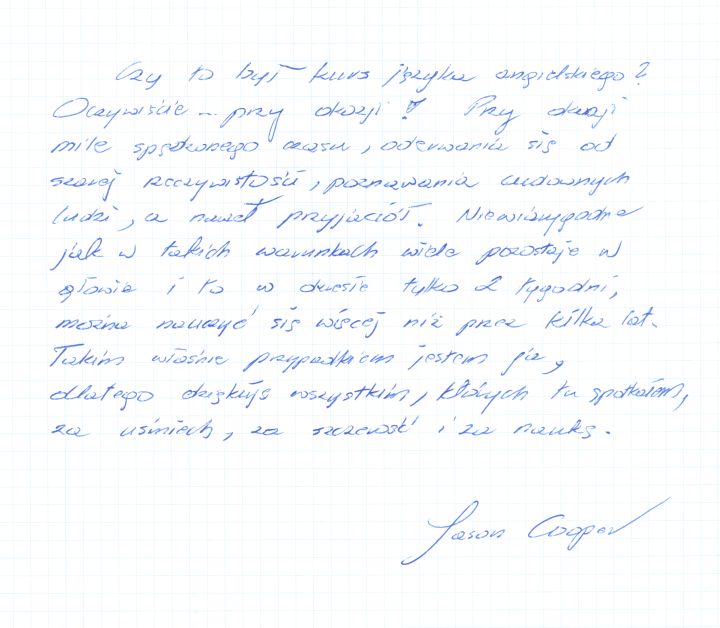 Czy to był kurs języka angielskiego?
Oczywiście - przy okazji! Przy okazji
mile spędzonego czasu, oderwania się od
szarej rzeczywistości, poznawania cudownych
ludzi, a nawet przyjaciół. Niewiarygodne
jak w takich warunkach wiele pozostaje w
głowie i to w okresie tylko 2 tygodni,
można nauczyć się więcej niż przez kilka lat.
Takim właśnie przypadkiem jestem ja,
dlatego dziękuję wszystkim, których tu spotkałem,
za uśmiech, za szczerość i za naukę.
Jason Cooper